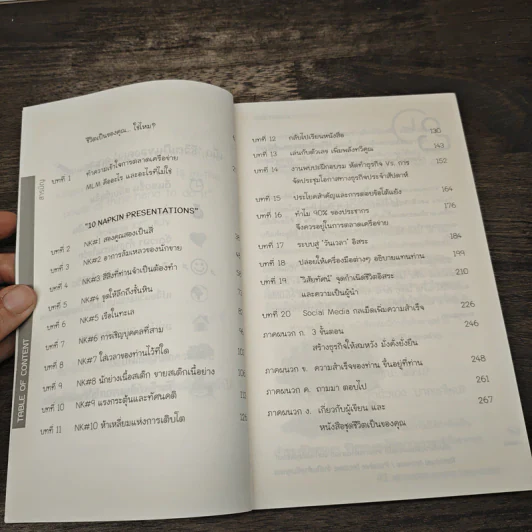 สารบัญ
TABLE OF CONTENT
ชีวิตเป็นของคุณ... ใช่ไหม?
บทที่ 1 ทำความเข้าใจการตลาดเครือข่าย
MLM คืออะไร และอะไรที่ไม่ใช่
"10 NAPKIN PRESENTATIONS"
บทที่ 2 NK#1 สองคูณสองเป็นสี่
บทที่ 3 NK#2 อาการล้มเหลวของนักขาย
บทที่ 4 NK#3 สี่สิ่งที่ท่านจำเป็นต้องทำ
บทที่ 5 NK#4 ขุดให้ลึกถึงชั้นหิน
บทที่ 6 NK#5 เรือในทะเล
บทที่ 7 NK#6 การเชิญบุคคลที่สาม
บทที่ 8 NK#7 ใส่เวลาของท่านไว้ที่ใด
บทที่ 9 NK#8 นักย่างเนื้อสเต็ก ขายสเต็กเนื้อย่าง
บทที่ 10 NK#9 แรงกระตุ้นและทัศนคติ
บทที่ 11 NK#10 ห้าเหลี่ยมแห่งการเติบโต
บทที่ 12 กลับไปเรียนหนังสือ 130
บทที่ 13 เล่นกับตัวเลข เพิ่มพลังทวีคูณ 143
บทที่ 14 งานพบปะฝึกอบรม หัดทำธุรกิจ VS. การ 152
จัดประชุมโอกาสทางธุรกิจประจำสัปดาห์
บทที่ 15 ประโยคสำคัญและการตอบข้อโต้แย้ง 164
บทที่ 16 ทำไม 90% ของประชากร 176
จึงควรอยู่ในการตลาดเครือข่าย
บทที่ 17 ระบบสู่ "วันเวลา" อิสระ 184
บทที่ 18 ปล่อยให้เครื่องมือต่างๆ อธิบายแทนท่าน 199
บทที่ 19 "วิสัยทัศน์" จุดกำเนิดชีวิตอิสระ 210
และความเป็นผู้นำ
บทที่ 20 Social Media กลเม็ดเพิ่มความสำเร็จ 226
ภาคผนวก ก. 3 ขั้นตอน 246
สร้างธุรกิจให้สมหวัง มั่งคั่งยั่งยืน
ภาคผนวก ข. ความสำเร็จของท่าน ขึ้นอยู่ที่ท่าน 248
ภาคผนวก ค. ถามมา ตอบไป 261
ภาคผนวก ง. เกี่ยวกับผู้เขียน และ 267
หนังสือชุดชีวิตเป็นของคุณ